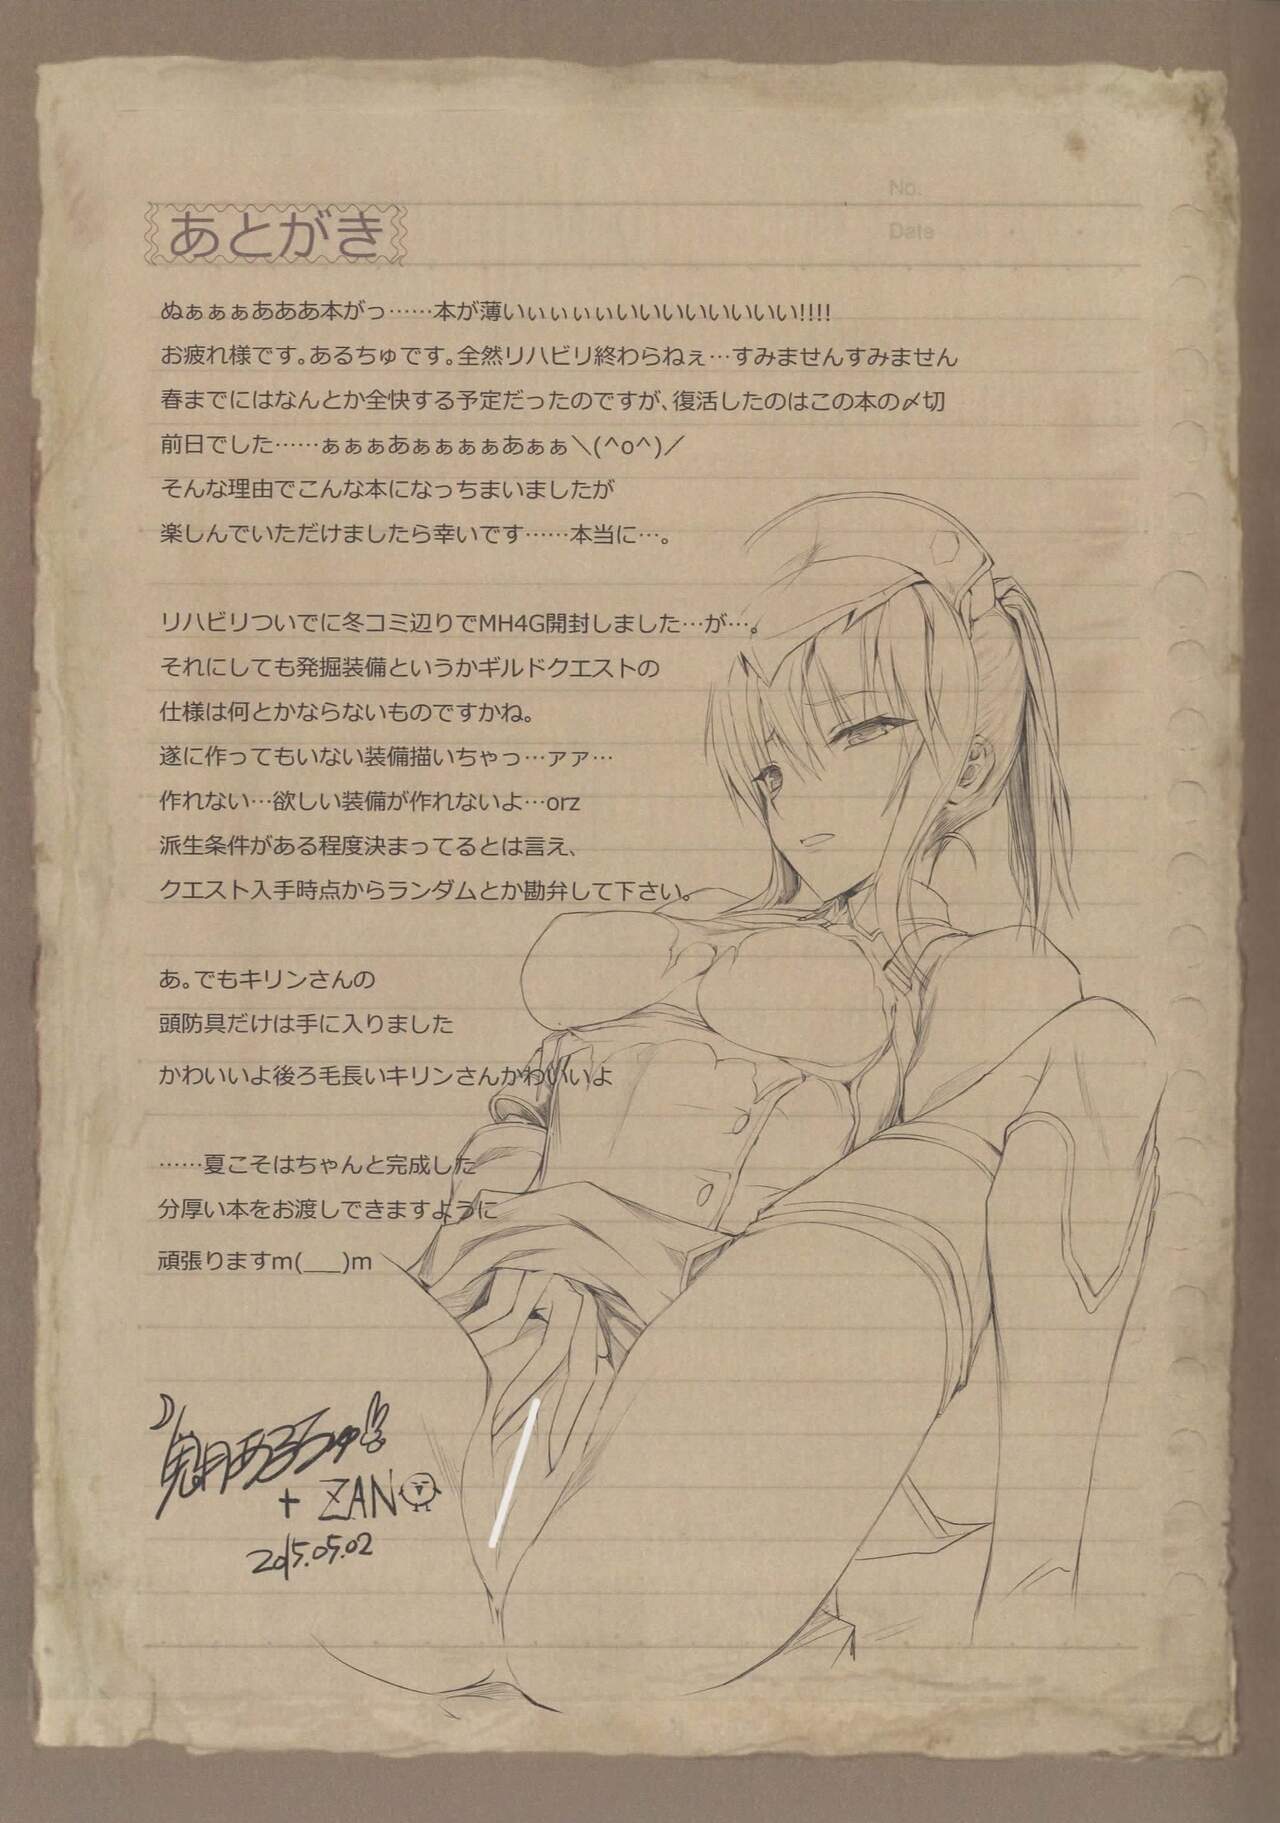 No.
Date
あとがき
ぬぁぁぁあああ本がっ……本が薄いぃぃぃぃいいいいいいいい!!!!
お疲れ様です。あるちゅです。全然リハビリ終わらねぇ…すみませんすみません
春までにはなんとか全快する予定だったのですが、復活したのはこの本の〆切
前日でした……ぁぁぁあぁぁぁぁあぁぁ＼(^o^)／
そんな理由でこんな本になっちまいましたが
楽しんでいただけましたら幸いです……本当に…。
リハビリついでに冬コミ辺りでMH4G開封しました…が…。
それにしても発掘装備というかギルドクエストの
仕様は何とかならないものですかね。
遂に作ってもいない装備描いちゃっ…ァァ…
作れない…欲しい装備が作れないよ…orz
派生条件がある程度決まってるとは言え、
クエスト入手時点からランダムとか勘弁して下さい。
あ。でもキリンさんの
頭防具だけは手に入りました
かわいいよ後ろ毛長いキリンさんかわいいよ
……夏こそはちゃんと完成した
分厚い本をお渡しできますように
頑張りますm(__)m
鬼月あるちゅ
+ ZAN
2015.05.02